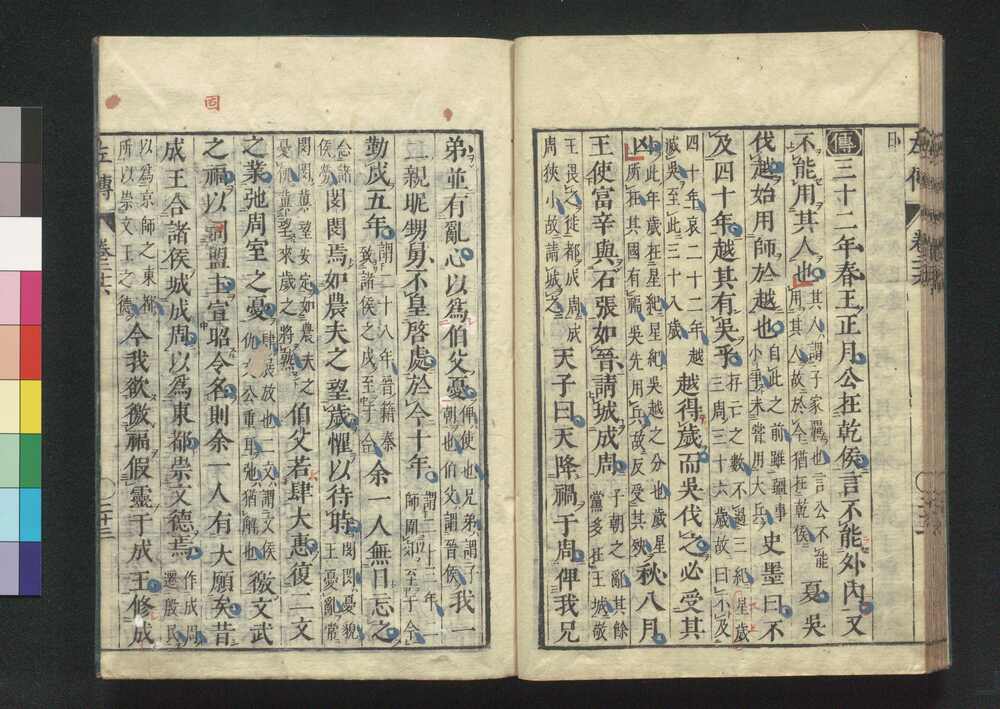 傳三十二年春王正月公在乾侯言不能外內又
不能用其人也其人謂子家羈也言公不能用其人故於今猶在乾侯夏吳
伐越始用師於越也自此之前雖疆事小爭未嘗用大兵史墨曰不
及四十年越其有吳乎存亡之數不過三紀星歲三周三十六歲故曰不及
四十年哀二十二年越滅吳至此三十八歲越得歲而吳伐之必受其
凶此年歲在星紀星紀吳越之分也歲星所在其國有福吳先用兵故反受其殃秋八月
王使富辛與石張如晉請城成周子朝之亂其餘黨多在王城敬
王畏之徙都成周成周狹小故請城之天子曰天降禍于周俾我兄
固
弟並有亂心以爲伯父憂俾使也兄弟謂子朝也伯父謂晉侯我一
二親昵甥舅不皇啓處於今十年謂二十三年二師圍郊至于今
勤戍五年謂二十八年晉籍秦致諸侯之戍至于今余一人無日忘之
念諸侯勞閔閔焉如農夫之望歲懼以待時閔閔憂貌王憂亂常
閔閔冀望安定如農夫之憂飢冀望來歲之將熟伯父若肆大惠復二文
之業弛周室之憂肆展放也二文謂文侯仇文公重耳弛猶解也徼文武
之福以固盟主宣昭令名則余一人有大願矣昔
成王合諸侯城成周以爲東都崇文德焉作成周遷殷民
以為京師之東都所以崇文王之德今我欲徼福假靈于成王修成
左傳